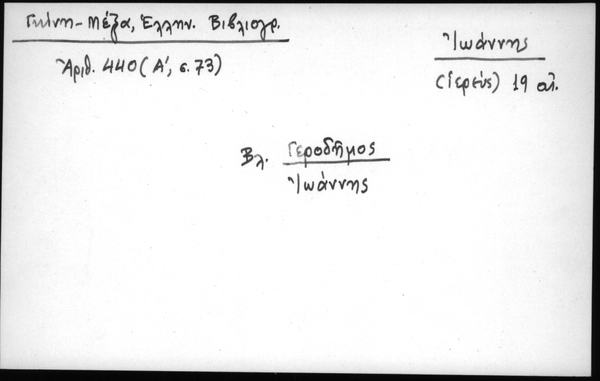 Γκίνη-Μέξα, Ἑλλην. Βιβλιογρ.
Ἀριθ. 440 (Α', σ. 73)
Ἰωάννης
(Ἱερεύς) 19 αἰ.
Βλ. Γεροδῆμος
Ἰωάννης